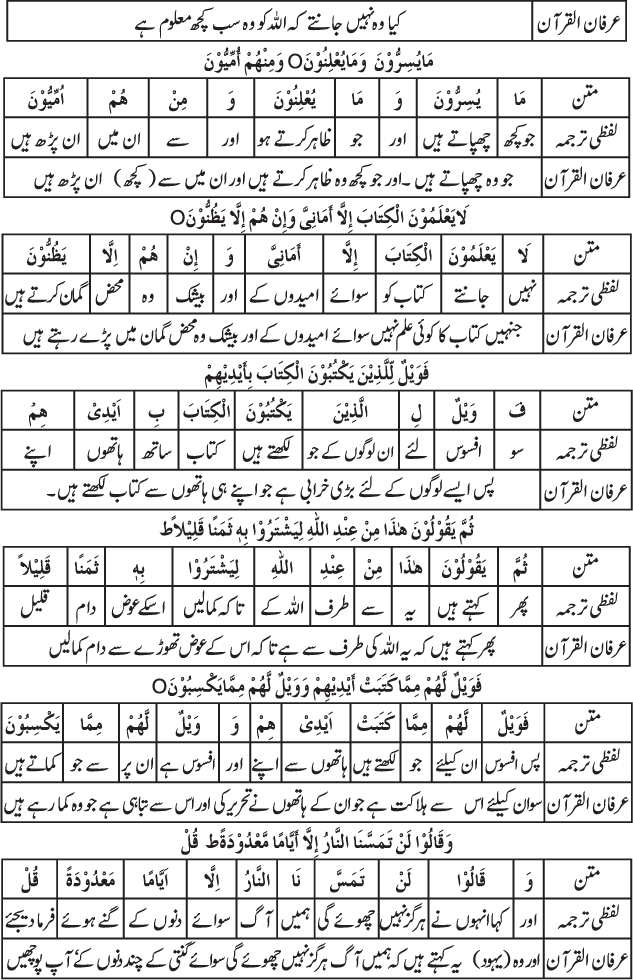 عرفان القرآن کیا وہ نہیں جانتے کہ اللہ کو وہ سب کچھ معلوم ہے
مَایُسِرُّوْنَ وَمَایُعْلِنُوْنَO وَمِنْهُمْ اُمِّیُّوْنَ
متن مَا یُسِرُّوْنَ وَ مَا یُعْلِنُوْنَ وَ مِنْ هُمْ اُمِّیُّوْنَ
لفظی ترجمہ جو کچھ چھپاتے ہیں اور جو ظاہر کرتے ہو اور سے ان میں ان پڑھ ہیں
عرفان القرآن جو وہ چھپاتے ہیں۔ اور جو کچھ وہ ظاہر کرتے ہیں اور ان میں سے (کچھ) ان پڑھ ہیں
لَایَعْلَمُوْنَ الْکِتَابَ اِلَّا اَمَانِیَّ وَاِنْ هُمْ اِلَّا یَظُنُّوْنَO
متن لَا یَعْلَمُوْنَ الْکِتَابَ اِلَّا اَمَانِیَّ وَ اِنْ هُمْ اِلَّا یَظُنُّوْنَ
لفظی ترجمہ نہیں جانتے کتاب کو سوائے امیدوں کے اور بیشک وہ محض گمان کرتے ہیں
عرفان القرآن جنہیں کتاب کا کوئی علم نہیں سوائے امیدوں کے اور بیشک وہ محض گمان میں پڑے رہتے ہیں
فَوَیْلٌ لِّلَّذِیْنَ یَکْتُبُوْنَ الْکِتَابَ بِاَیْدِیْهِمْ
متن فَ وَیْلٌ لِ الَّذِیْنَ یَکْتُبُوْنَ الْکِتَابَ بِ اَیْدِیْ هِمُ
لفظی ترجمہ سو افسوس لئے ان لوگوں کے جو لکھتے ہیں کتاب ساتھ ہاتھوں اپنے
عرفان القرآن پس ایسے لوگوں کے لئے بڑی خرابی ہے جو اپنے ہی ہاتھوں سے کتاب لکھتے ہیں۔
ثُمَّ یَقُوْلُوْنَ هٰذَا مِنْ عِنْدِ اللّٰهِ لِیَشْتَرُوْا بِهٖ ثَمَنًا قَلِیْلًاط
متن ثُمَّ یَقُوْلُوْنَ هٰذَا مِنْ عِنْدِ اللّٰهِ لِیَشْتَرُوْا بِهٖ ثَمَنًا قَلِیْلاً
لفظی ترجمہ پھر کہتے ہیں یہ سے طرف اللہ کے تاکہ کمالیں اسکے عوض دام قلیل
عرفان القرآن پھر کہتے ہیں کہ یہ اللہ کی طرف سے ہے تاکہ اس کے عوض تھوڑے سے دام کمالیں
فَوَیْلٌ لَّهُمْ مِمَّا کَتَبَتْ اَیْدِیْهِمْ وَوَیْلٌ لَّهُمْ مِمَّایَکْسِبُوْنَO
متن فَوَیْلٌ لَّهُمْ مِمَّا کَتَبَتْ اَیْدِیْ هِمْ وَ وَیْلٌ لَّهُمْ مِمَّا یَکْسِبُوْنَ
لفظی ترجمہ پس افسوس ان کیلئے جو لکھتے ہیں ہاتھوں سے اپنے اور افسوس ہے ان پر سے جو کماتے ہیں
عرفان القرآن سو ان کیلئے اس سے ہلاکت ہے جو ان کے ہاتھوں نے تحریر کی اور اس سے تباہی ہے جو وہ کما رہے ہیں
وَقَالُوْا لَنْ تَمَسَّنَا النَّارُ اِلَّا اَیَّامًا مَّعْدُوْدَةًط قُلْ
متن وَ قَالُوْا لَنْ تَمَسَّ نَا النَّارُ اِلَّا اَیَّامًا مَعْدُوْدَةً قُلْ
لفظی ترجمہ اور کہا انہوں نے ہرگز نہیں چھوئے گی ہمیں آگ سوائے دنوں کے گنے ہوئے فرما دیجئے
عرفان القرآن اور وہ (یہود) یہ کہتے ہیں کہ ہمیں آگ ہرگز نہیں چھوئے گی سوائے گنتی کے چند دنوں کے‘ آپ پوچھیں